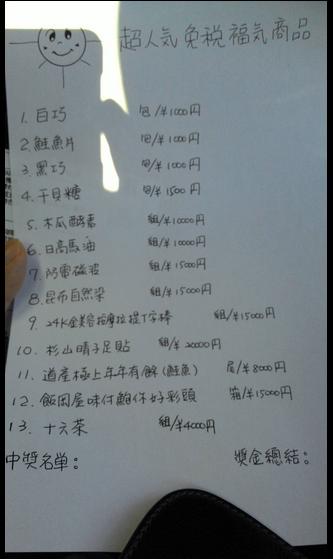 超人気免税福気商品
1. 白巧 包/¥1000円
2. 鮭魚片 包/¥1000円
3. 黑巧 包/¥1000円
4. 干貝糖 包/¥1500円
5. 木瓜酵素 組/¥10000円
6. 日高馬油 組/¥10000円
7. 防電磁波 組/¥15000円
8. 昆布自然染 組/¥15000円
9. 24K金美容按摩拉提T字棒 組/¥15000円
10. 杉山晴子足貼 組/¥20000円
11. 道產極上年年有餘(鮭魚) 尾/¥8000円
12. 飯岡屋味付鮑你好彩頭 箱/¥15000円
13. 十六茶 組/¥4000円
中獎名單: 獎金總結: